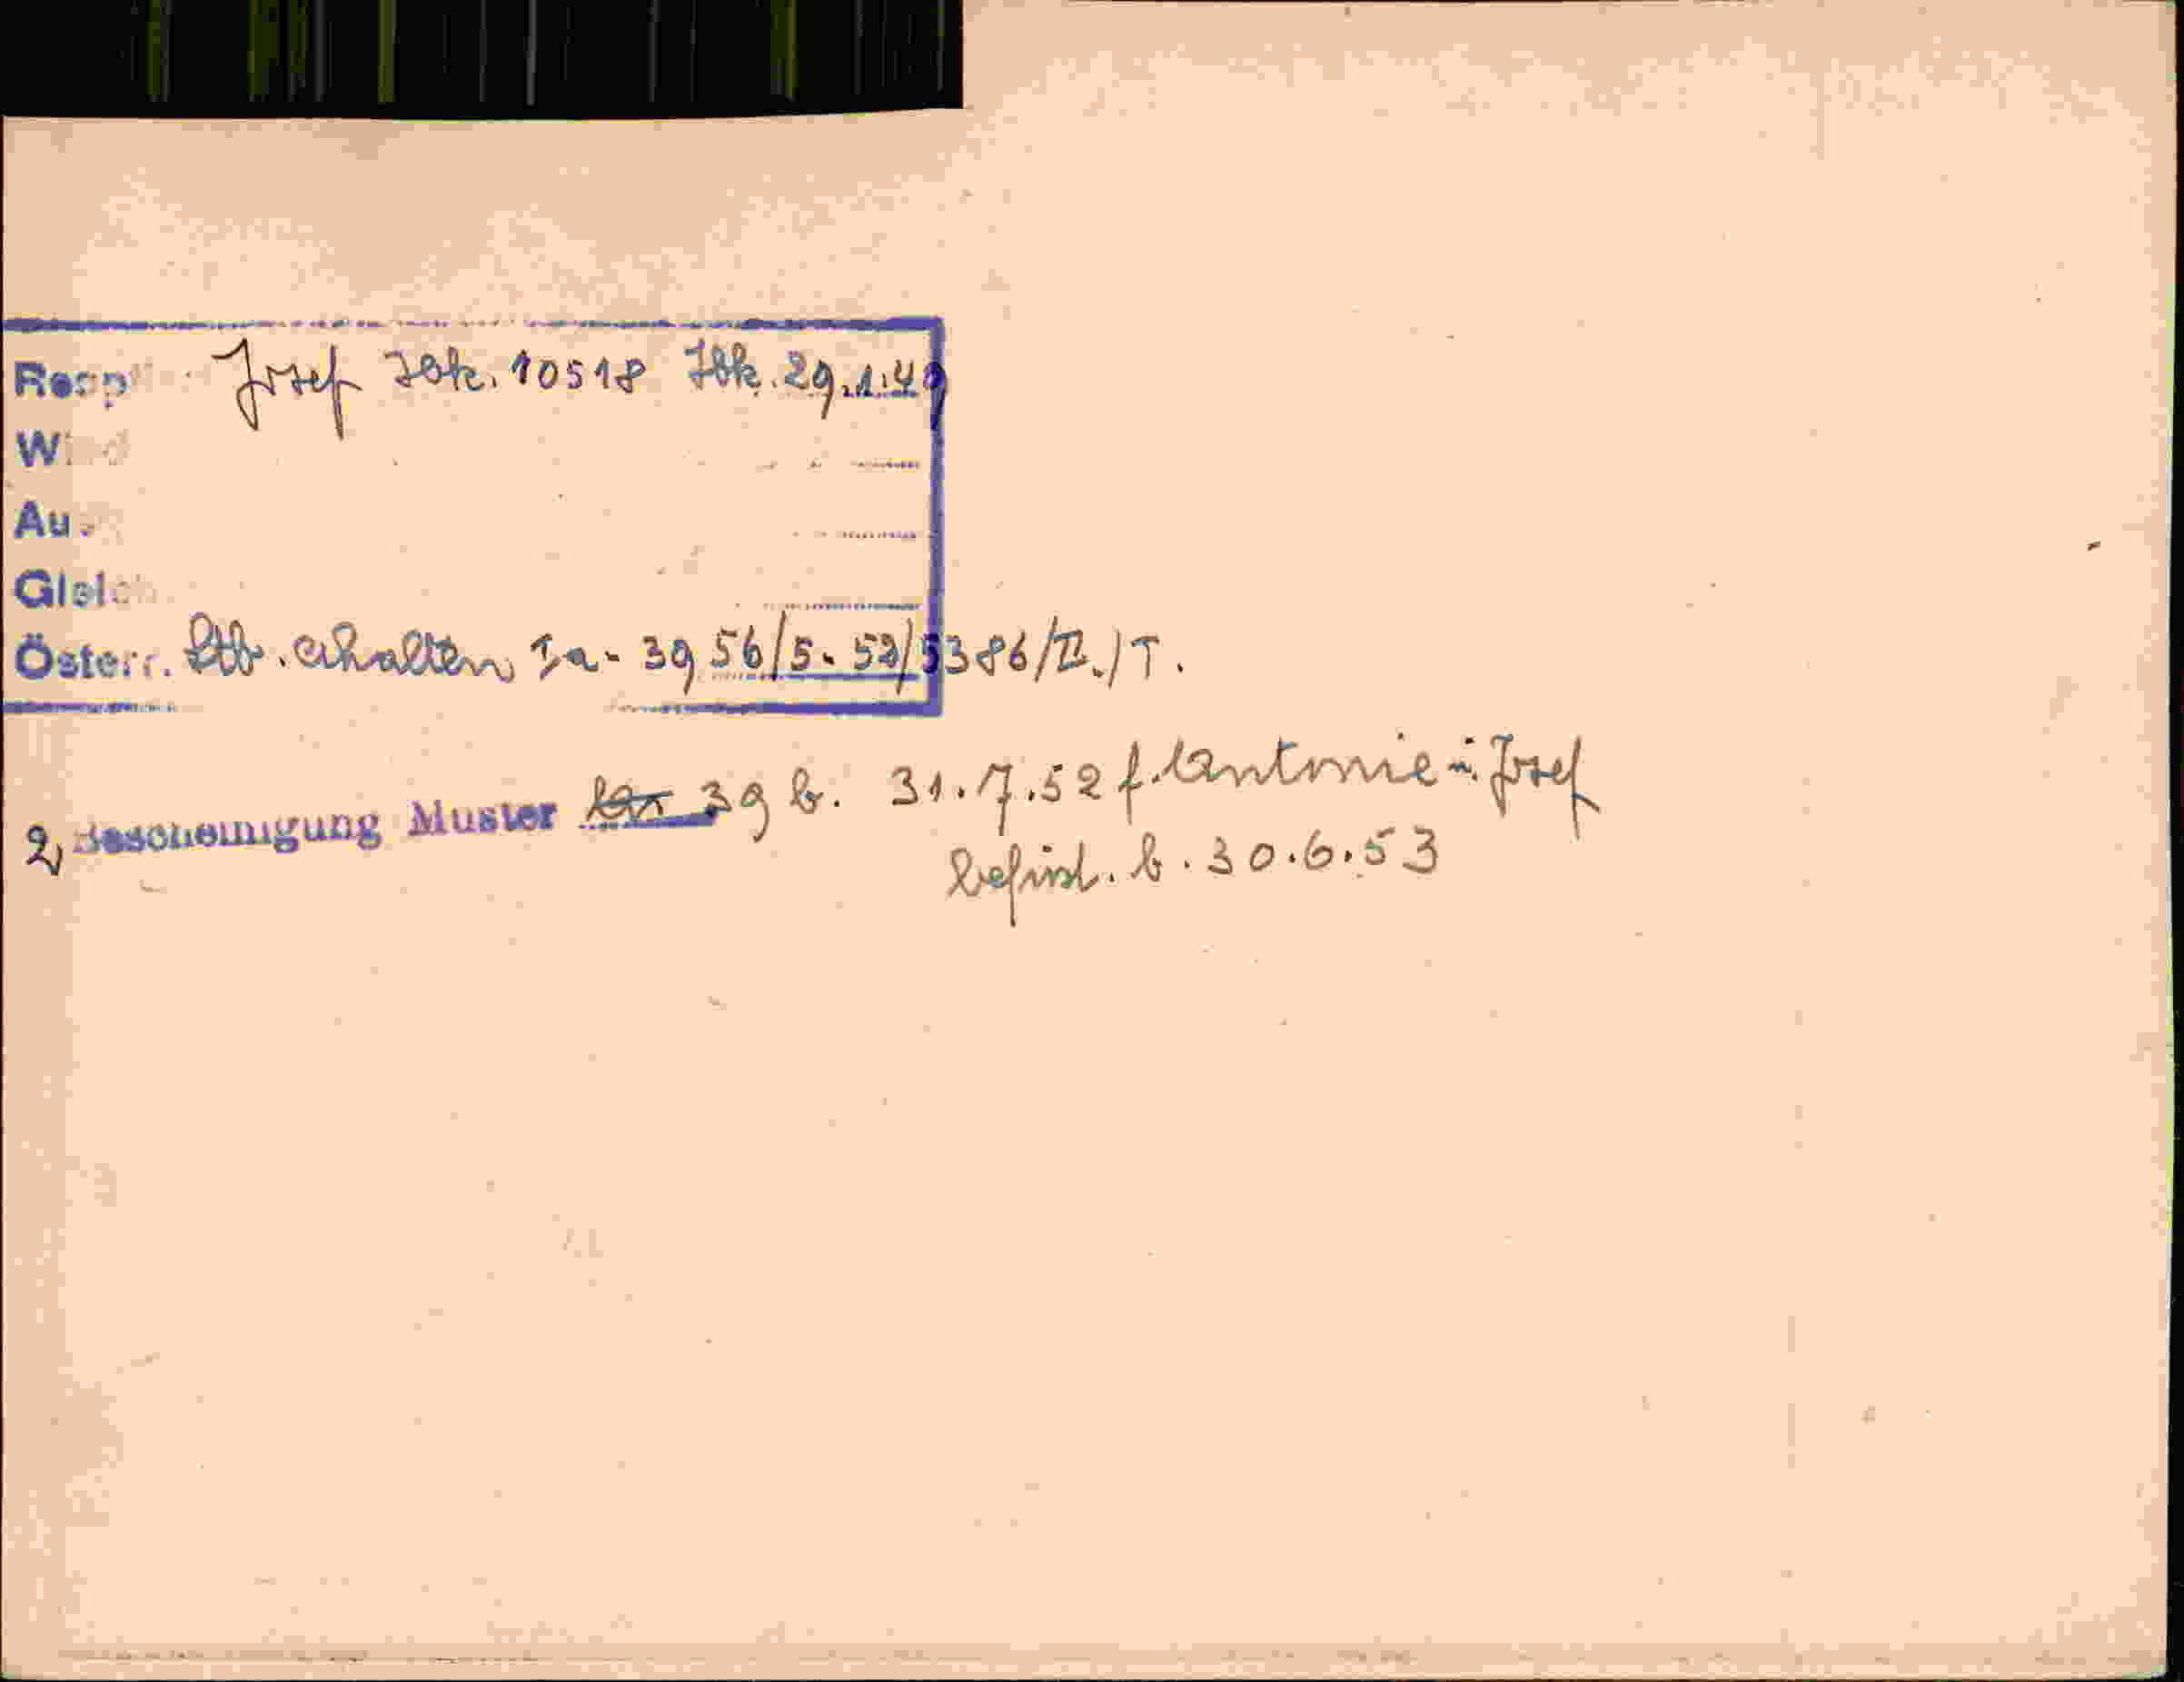 Resp Josef Ibk. 10518 Ibk. 29.1.49
W
Au
Gleich
Österr. Stb. erhalten Ia- 3956/5. 53/5386/II./T.
2, Bescheinigung Muster 39 b. 31.7.52 f. Antonie u. Josef
befrist. b. 30.6.53